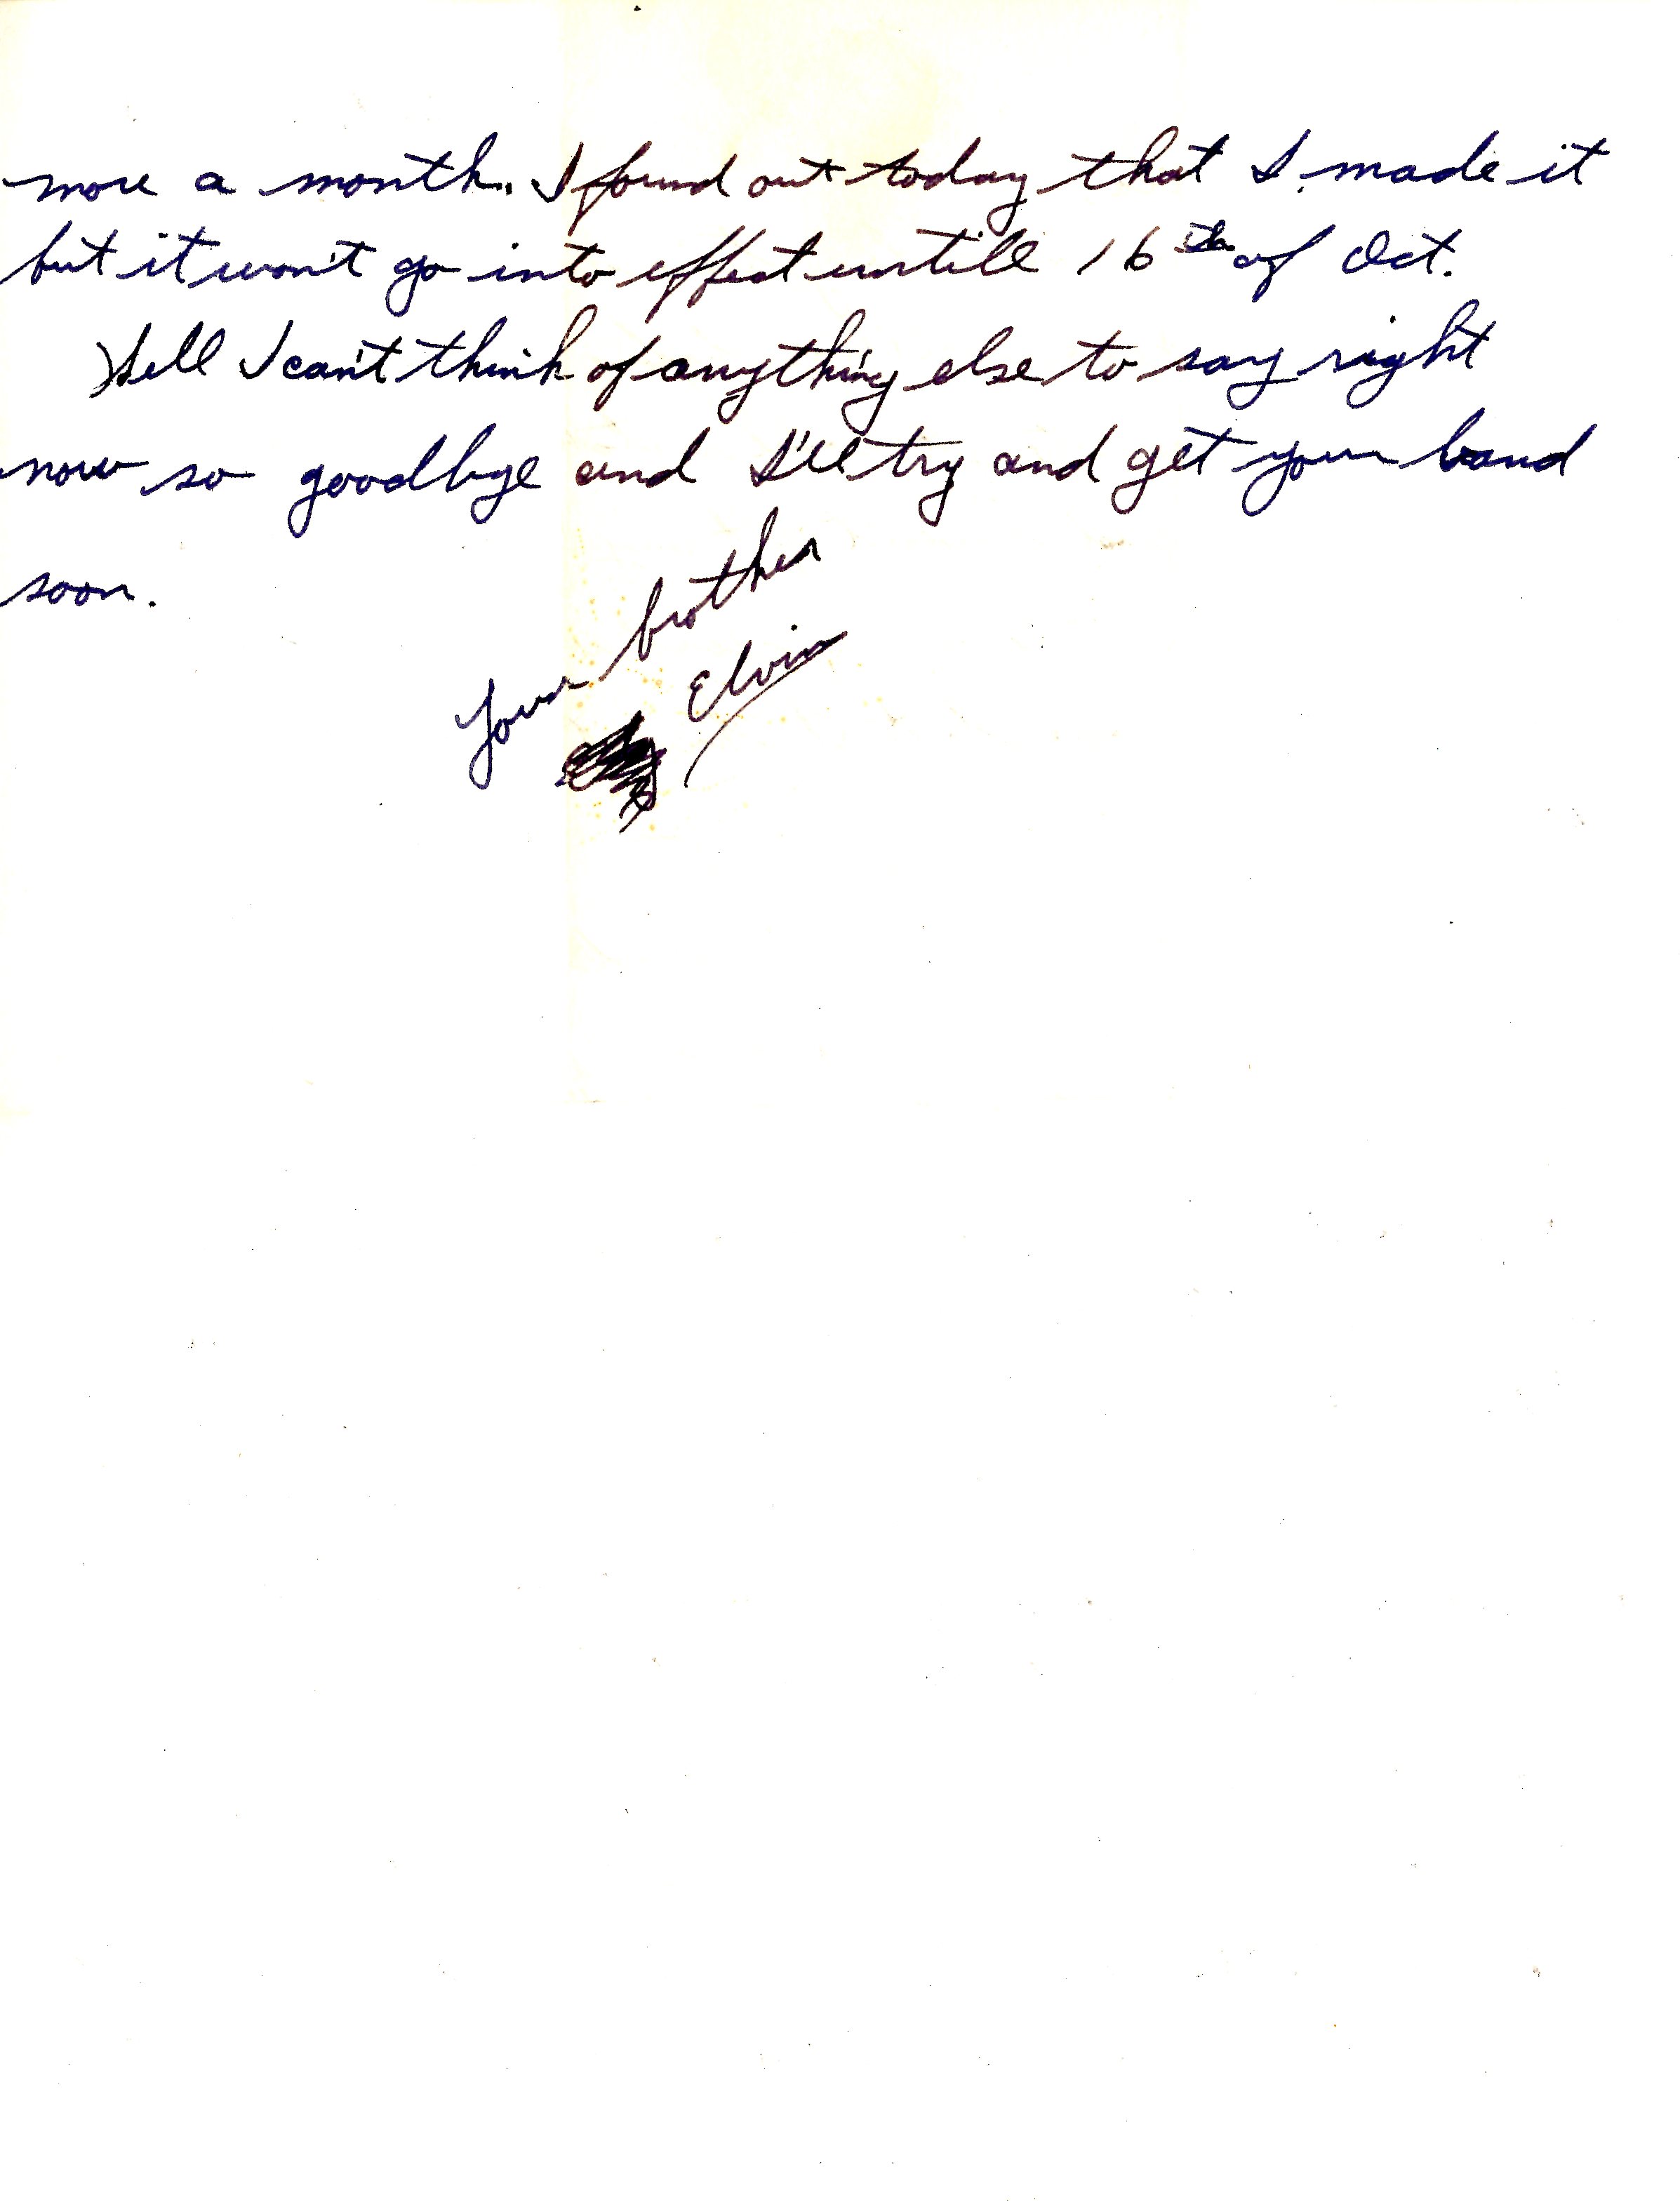 more a month. I found out today that I made it
but it won't go into effect untill 16th of Oct.
Well I can't think of anything else to say right
now so goodbye and I'll try and get your band
soon.
Your brother
Elvin